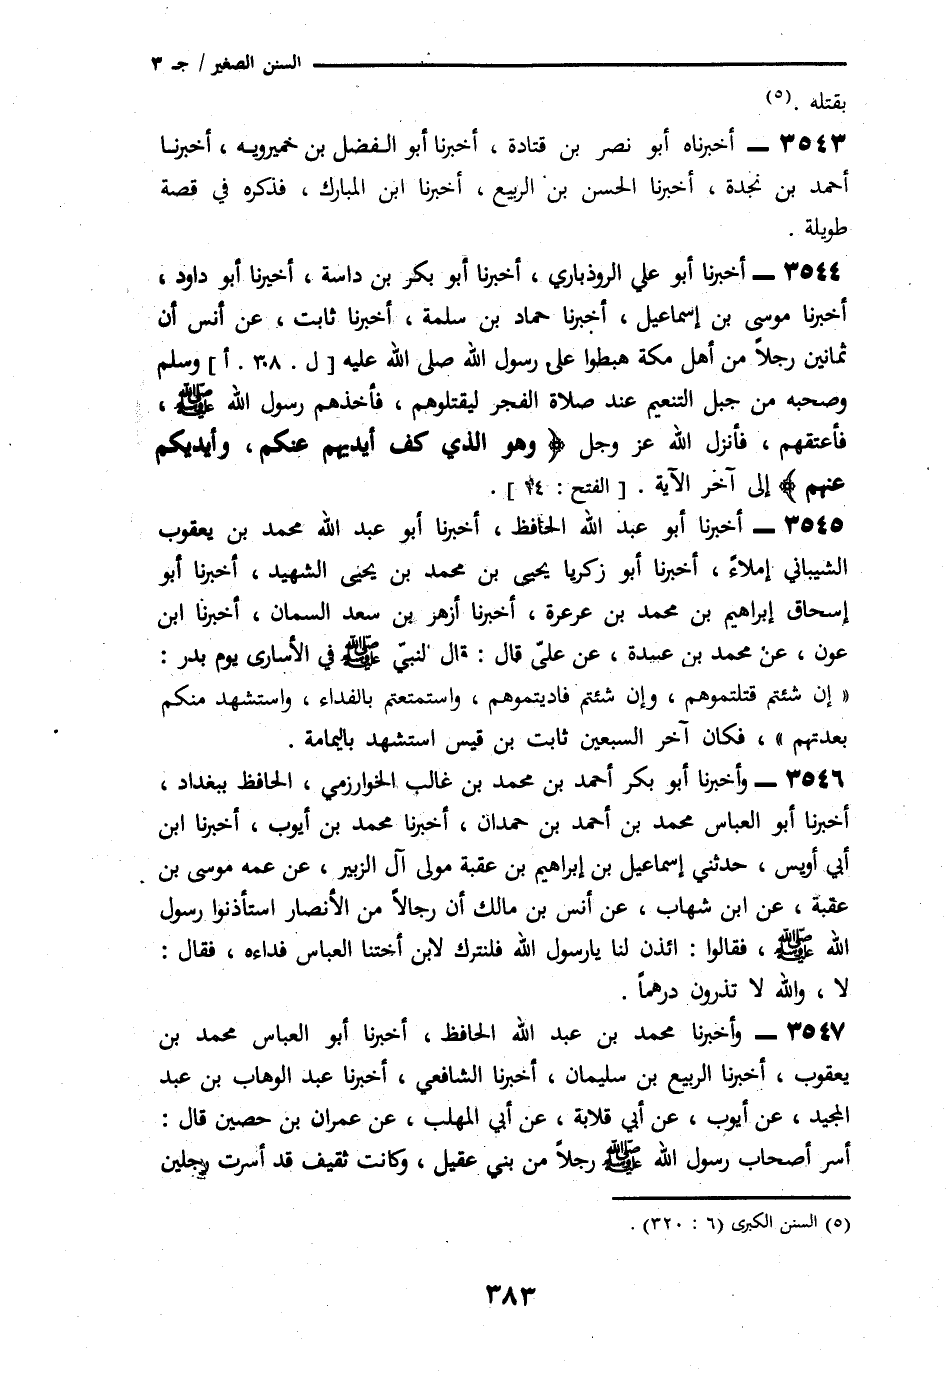 السنن الصغير / جـ ٣
بقتله . (٥)
٣٥٤٣ ـ أخبرناه أبو نصر بن قتادة ، أخبرنا أبو الـفضل بن خميرويـه ، أخبرنـا
أحمد بن نجدة ، أخبرنا الحسن بن الربيع ، أخبرنا ابن المبارك ، فذكره في قصة
طويلة .
٣٥٤٤ ـ أخبرنا أبو علي الروذباري ، أخبرنا أبو بكر بن داسة ، أخبرنا أبو داود ،
أخبرنا موسى بن إسماعيل ، أخبرنا حماد بن سلمة ، أخبرنا ثابت ، عن أنس أن
ثمانين رجلاً من أهل مكة هبطوا على رسول الله صلى الله عليه [ ل . ٣٠٨ . أ ] وسلم
وصحبه من جبل التنعيم عند صلاة الفجر ليقتلوهم ، فأخذهم رسول الله ﷺ ،
فأعتقهم ، فأنزل الله عز وجل ﴿ وهو الذي كف أيديهم عنكم ، وأيديكم
عنهم ﴾ إلى آخر الآية . [ الفتح : ٢٤ ] .
٣٥٤٥ ـ أخبرنا أبو عبد الله الحافظ ، أخبرنا أبو عبد الله محمد بن يعقوب
الشيباني إملاءً ، أخبرنا أبو زكريا يحيى بن محمد بن يحيى الشهيد ، أخبرنا أبو
إسحاق إبراهيم بن محمد بن عرعرة ، أخبرنا أزهر بن سعد السمان ، أخبرنا ابن
عون ، عن محمد بن عبيدة ، عن عليّ قال : قال النبيّ ﷺ في الأسارى يوم بدر :
« إن شئتم قتلتموهم ، وإن شئتم فاديتموهم ، واستمتعتم بالفداء ، واستشهد منكم
بعدتهم » ، فكان آخر السبعين ثابت بن قيس استشهد باليمامة .
٣٥٤٦ ـ وأخبرنا أبو بكر أحمد بن محمد بن غالب الخوارزمي ، الحافظ ببغداد ،
أخبرنا أبو العباس محمد بن أحمد بن حمدان ، أخبرنا محمد بن أيوب ، أخبرنا ابن
أبي أويس ، حدثني إسماعيل بن إبراهيم بن عقبة مولى آل الزبير ، عن عمه موسى بن
عقبة ، عن ابن شهاب ، عن أنس بن مالك أن رجالاً من الأنصار استأذنوا رسول
الله ﷺ ، فقالوا : ائذن لنا يارسول الله فلنترك لابن أختنا العباس فداءه ، فقال :
لا ، والله لا تذرون درهماً .
٣٥٤٧ ـ وأخبرنا محمد بن عبد الله الحافظ ، أخبرنا أبو العباس محمد بن
يعقوب ، أخبرنا الربيع بن سليمان ، أخبرنا الشافعي ، أخبرنا عبد الوهاب بن عبد
المجيد ، عن أيوب ، عن أبي قلابة ، عن أبي المهلب ، عن عمران بن حصين قال :
أسر أصحاب رسول الله ﷺ رجلاً من بني عقيل ، وكانت ثقيف قد أسرت رجلين
(٥) السنن الكبرى (٦ : ٣٢٠) .
٣٨٣